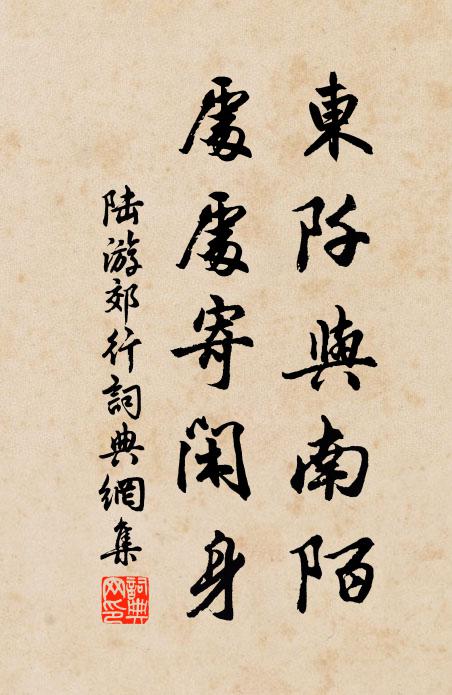 東阡與南陌
處處寄閑身
陸游郊行詞典網集
詞典
网印